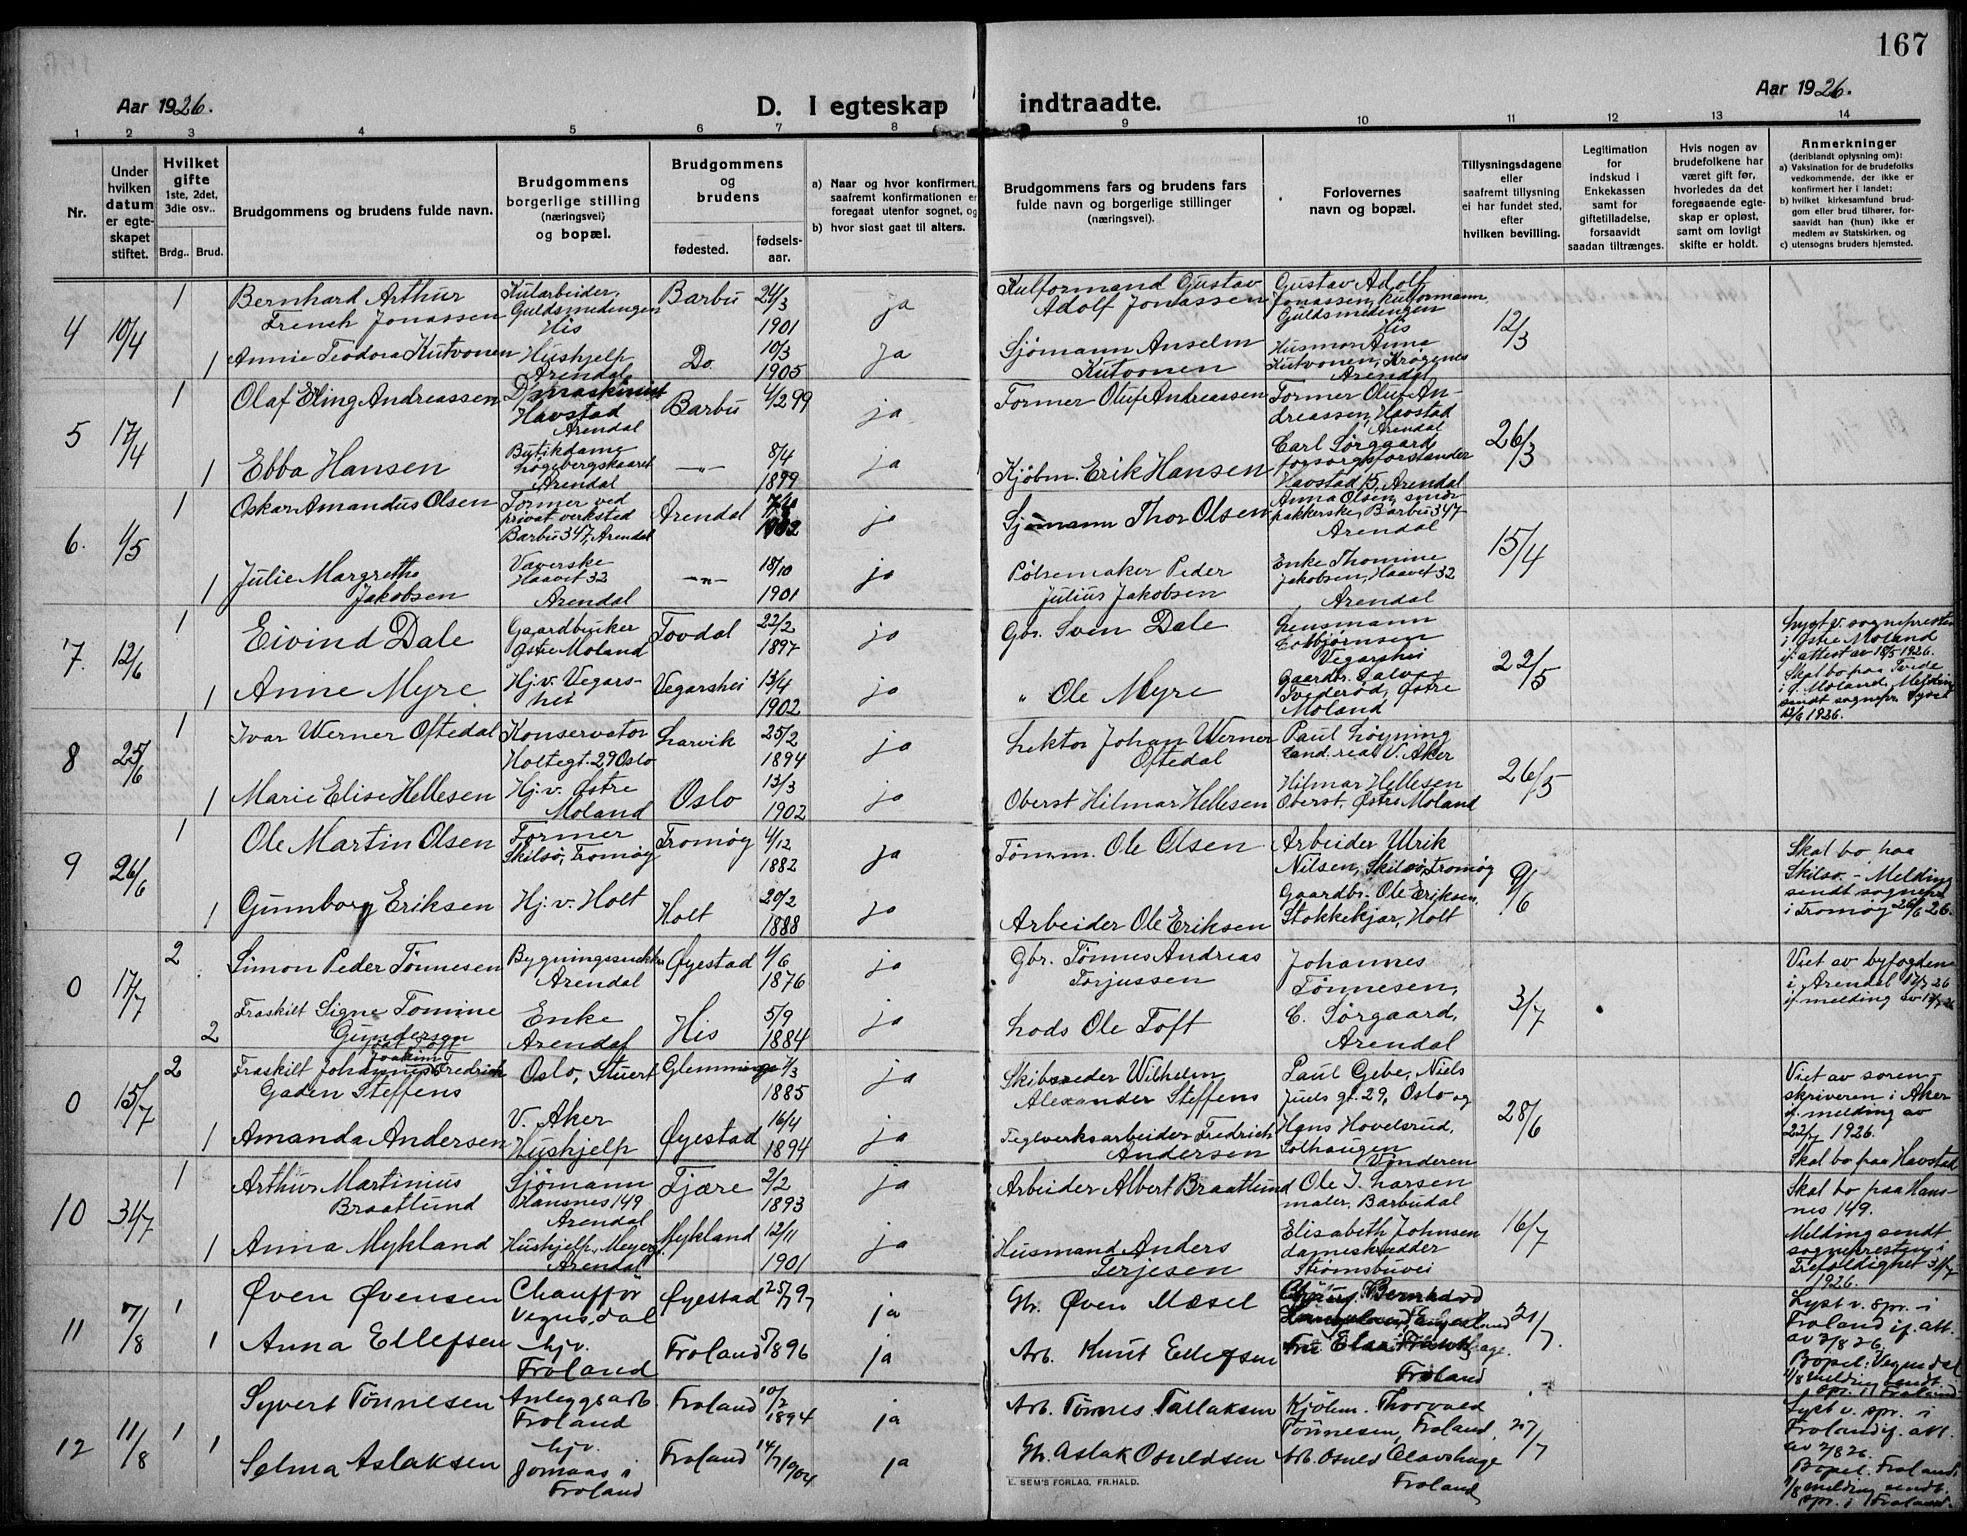 167
Aar 1926.
D. I egteskap indtraadte.
Aar 1926.
1 2 3 4 5 6 7 8 9 10 11 12 13 14
Nr.
Under hvilken datum er egteskapet stiftet.
Hvilket gifte 1ste, 2det, 3die osv..
Brdg.. Brud.
Brudgommens og brudens fulde navn.
Brudgommens borgerlige stilling (næringsvei) og bopæl.
Brudgommens og brudens
fødested.
fødsels-aar.
a) Naar og hvor konfirmert, saafremt konfirmationen er foregaat utenfor sognet, og
b) hvor sidst gaat til alters.
Brudgommens fars og brudens fars fulde navn og borgerlige stillinger (næringsvei).
Forlovernes navn og bopæl.
Tillysningsdagene eller saafremt tillysning ei har fundet sted, efter hvilken bevilling.
Legitimation for indskud i Enkekassen samt for giftetilladelse, forsaavidt saadan tiltrænges.
Hvis nogen av brudefolkene har været gift før, hvorledes da det foregaaende egteskap er opløst, samt om lovligt skifte er holdt.
Anmerkninger (deriblandt oplysning om):
a) Vaksination for de brudefolks vedkommende, der ikke er konfirmert her i landet;
b) hvilket kirkesamfund brudgom eller brud tilhører, forsaavidt han (hun) ikke er medlem av Statskirken, og
c) utensogns bruders hjemsted.
4 10/4 1 Bernhard Arthur French Jonassen Kularbeider, Guldsmedengen His Barbu 24/3 1901 ja Kulformand Gustav Adolf Jonassen Gustav Adolf Jonassen, Kulformann, Guldsmedengen His 12/3
1 Annie Teodora Kutvonen Hushjelp Arendal Do. 10/3 1905 ja Sjømann Anselm Kutvonen Husmor Anna Kutvonen, Krøgenes Arendal
5 17/4 1 Olaf Erling Andreassen Havstad Arendal Barbu 4/2 99 ja Former Oluf Andreassen Former Oluf Andreassen, Havstad Arendal 26/3
1 Ebba Hansen Butikdame Arendal —"— 8/4 1899 ja Kjøbm. Erik Hansen Carl Sørgaard forsorgsforstander Havstad 15, Arendal
6. 1/5 1 Oskar Amandus Olsen Former ved privat verksted Barbu 347, Arendal Arendal 1902 ja Sjømann Thor Olsen Anna Olsen, smørpakkerske, Barbu 347 Arendal 15/4
1 Julie Margrethe Jakobsen Væverske Haavet 32 Arendal —"— 18/10 1901 ja Pølsemaker Peder Julius Jakobsen Enke Thomine Jakobsen, Haavet 32 Arendal
7. 12/6 1 Eivind Dale Gaardbruker Østre Moland Tovdal 22/2 1897 ja Gbr. Sven Dale Lensmann Vegarshei 22/5 Lyst v. sognepresten i Østre Moland if. attest av 18/5 1926. Skal bo paa Tvede i Ø. Moland. Melding sendt sognepr. 12/6 1926.
1 Anne Myre Hj. v. Vegarshei Vegarshei 13/4 1902 ja " Ole Myre Gaardbr. Tvederød, Østre Moland
8 25/6 1 Ivar Werner Oftedal Konservator Holtegt. 29 Oslo Larvik 25/2 1894 ja Lektor Johan Werner Oftedal Paul Løyning Cand. real V. Aker 26/5
1 Marie Elise Hellesen Hj. v. Østre Moland Oslo 13/3 1902 ja Oberst Hilmar Hellesen Hilmar Hellesen Oberst, Østre Moland
9 26/6 1 Ole Martin Olsen Former Skilsø, Tromøy Tromøy 4/12 1882 ja Tømm. Ole Olsen Arbeider Ulrik Nilsen, Skilsø, Tromøy 9/6 Skal bo paa Skilsø. – Melding sendt sognepr. i Tromøy 26/6 26.
1 Gunnborg Eriksen Hj. v. Holt Holt 20/2 1888 ja Arbeider Ole Eriksen Gaardbr. Ole Eriksen, Stokkekjær, Holt
0 17/7 2 Simon Peder Tønnesen Bygningssnekker Arendal Øyestad 1/6 1876 ja Gbr. Tønnes Andreas Torjussen Johannes Tønnesen, 3/7 Viet av byfogden i Arendal 17/7 26 if. melding av 17/7 26
2 Fraskilt Signe Tomine Gundersen født Toft Enke Arendal His 5/9 1884 ja Lods Ole Toft C. Sørgaard, Arendal
0 15/7 2 Fraskilt Johannes Joakim Fredrich Gaden Steffens Oslo, Stuert Glemminge 7/3 1885 ja Skibsreder Wilhelm Alexander Steffens Paul Gebe, Niels Juels gt. 29, Oslo og 28/6 Viet av sorenskriveren i Aker if. melding av 22/7 1926. Skal bo paa Havstad
1 Amanda Andersen V. Aker Hushjelp Øyestad 16/4 1894 ja Teglverksarbeider Fredrich Andersen Hans Hovelsrud, Solhaugen Vinderen
10 31/7 1 Arthur Martinius Braatlund Sjømann Hansnes 149 Arendal Fjære 2/2 1893 ja Arbeider Albert Braatlund Ole J. Larsen maler, Barbudal 16/7 Skal bo paa Hansnes 149. Melding sendt sognepresten i Trefoldighet 31/7 1926.
1 Anna Mykland Hushjelp, Meyer Arendal Mykland 12/11 1901 ja Husmand Anders Terjesen Elisabeth Johnsen dameskrædder Strømsbuvei
11 7/8 1 Øven Øvensen Chauffør Vegusdal Øyestad 25/7 97 ja Gbr. Øven Mæsel Bernhard 21/7. Lyst v. spr. i Froland if. att. av 7/8 26. Bopel: Vegusdal 1/8 melding sendt spr. i Froland
1 Anna Ellefsen hjv. Froland Froland 5/7 1896 ja Arb. Knut Ellefsen Froland
12 11/8 1 Syvert Tønnesen Anleggsarb Froland Froland 10/2 1894 ja Arb. Tønnes Tallaksen Kjøbm. Thorvald Tønnesen, Froland, 27/7 Lyst v. spr. i Froland if. att. av 7/8 26. Bopel. Froland. 1/8 melding sendt. spr. i Froland.
1 Selma Aslaksen hjv. Jomaas i Froland Froland 14/7 1904 ja Gbr. Aslak Osuldsen Arb. Osuld Olavshage Froland
E. SEM'S FORLAG, FR.HALD.